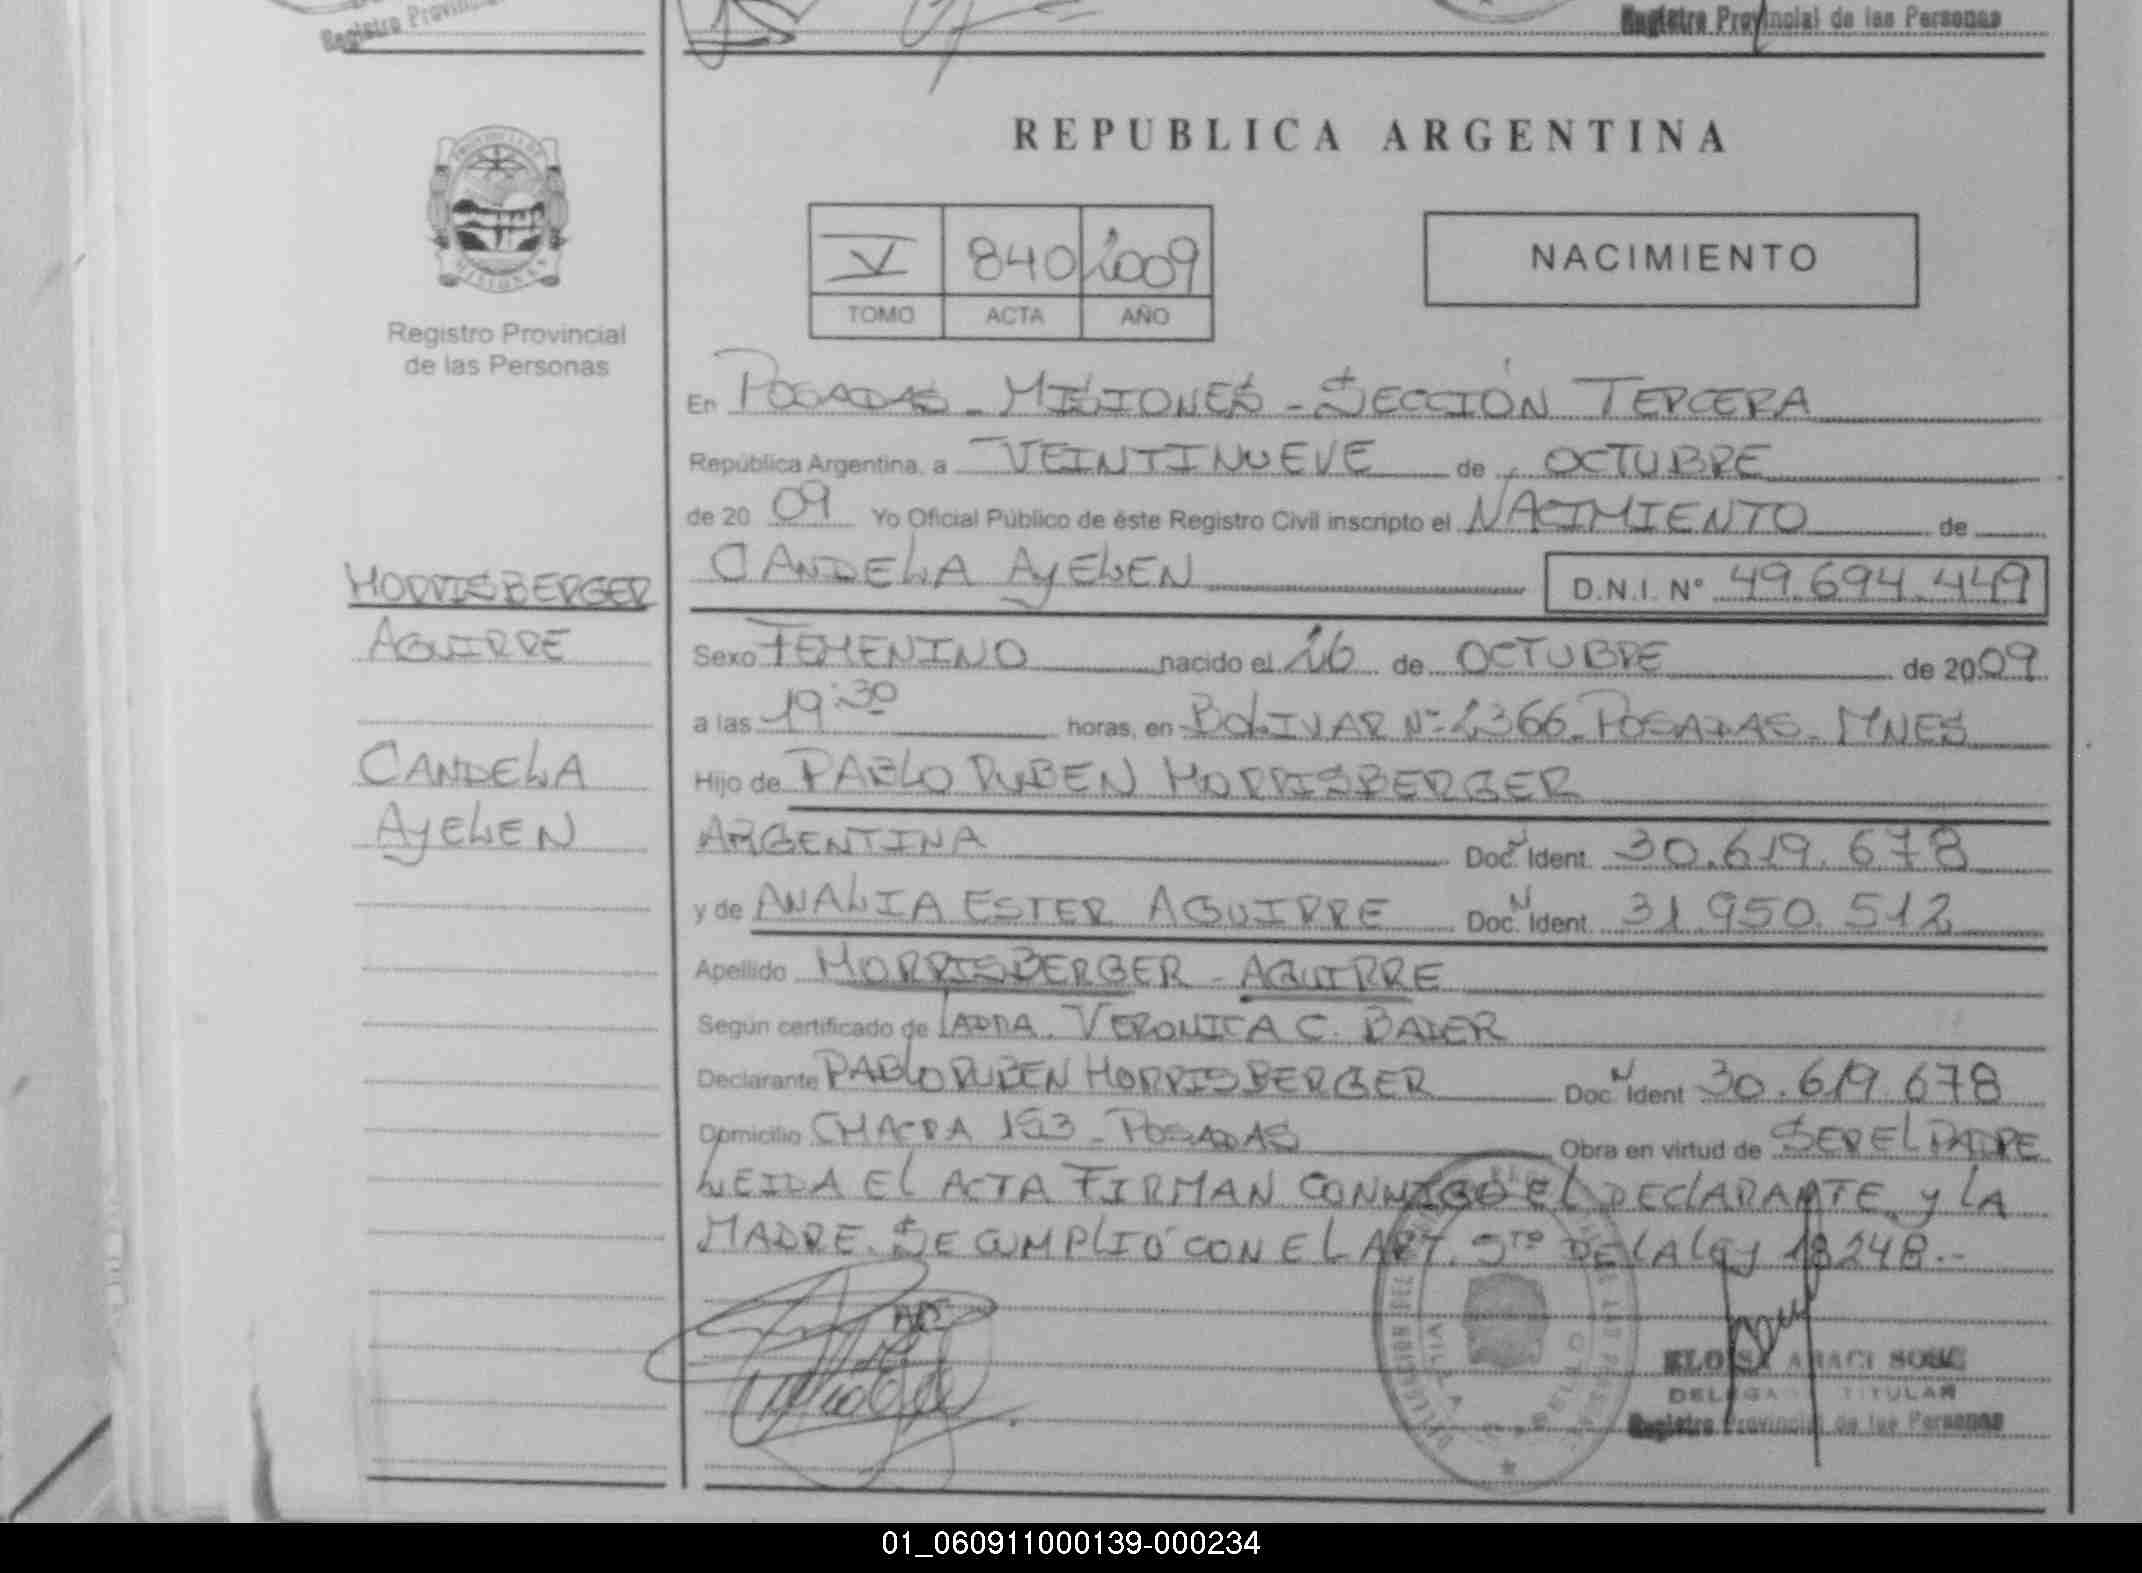 Registro Provincial
Registro Provincial de las Personas
REPUBLICA ARGENTINA
V 840 2009
NACIMIENTO
TOMO ACTA AÑO
Registro Provincial
de las Personas
En POSADAS - MISIONES - SECCIÓN TERCERA
República Argentina, a VEINTINUEVE de OCTUBRE
de 20 09 Yo Oficial Público de éste Registro Civil inscripto el NACIMIENTO de
CANDELA AYELEN D.N.I. Nº 49.694.449
HORRISBERGER
AGUIRRE
CANDELA
AYELEN
Sexo FEMENINO nacido el 26 de OCTUBRE de 20 09
a las 19:30 horas, en BOLIVAR Nº 2366 - POSADAS - MNES
Hijo de PABLO RUBEN HORRISBERGER
ARGENTINA Doc. Ident. 30.619.678
y de ANALIA ESTER AGUIRRE Doc. Ident. 31.950.512
Apellido HORRISBERGER - AGUIRRE
Según certificado de VERONICA C. BAIER
Declarante PABLO RUBEN HORRISBERGER Doc. Ident 30.619.678
Domicilio CHACRA 153 - POSADAS Obra en virtud de SER EL PADRE
LEIDA EL ACTA FIRMAN CONMIGO EL DECLARANTE y LA
MADRE. SE CUMPLIÓ CON EL ART. 5to DE LA LEY 18248.-
DELEGADA TITULAR
Registro Provincial de las Personas
01_060911000139-000234